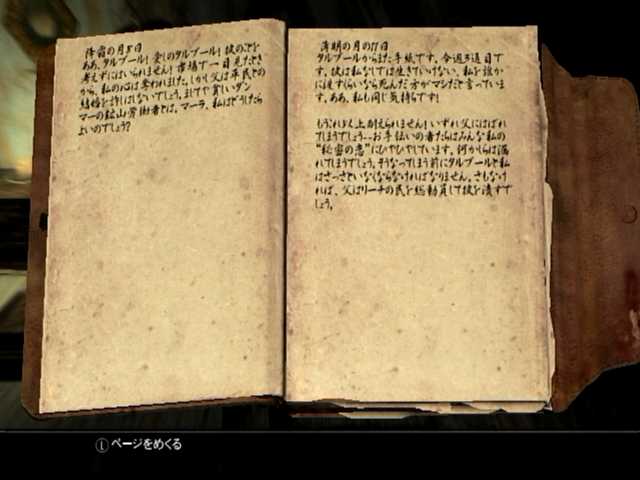 降霜の月8日
ああ、タルブール！愛しのタルブール！彼のことを
考えずにはいられません！市場で一目見たとき
から、私の心は奪われました。しかし父は平民との
結婚を許しはしないでしょう。ましてや貧しいダン
マーの鉱山労働者とは。マーラ、私はどうしたら
よいのでしょう？
薄明の月の11日
タルブールからまた手紙です。今週3通目で
す。彼は私なしでは生きていけない、私を誰か
に渡すくらいなら死んだ方がマシだと言っていま
す。ああ、私も同じ気持ちです！
もうこれ以上耐えられません！いずれ父にはばれ
てしまうでしょう--お手伝いの者たちはみんな私の
"秘密の恋"にひやひやしています。何かしらは漏
れてしまうでしょう。そうなってしまう前にタルブールと私
はさっさといなくならなければなりません。さもなけ
れば、父はリーチの民を総動員して彼を潰すで
しょう。
Ⓛページをめくる